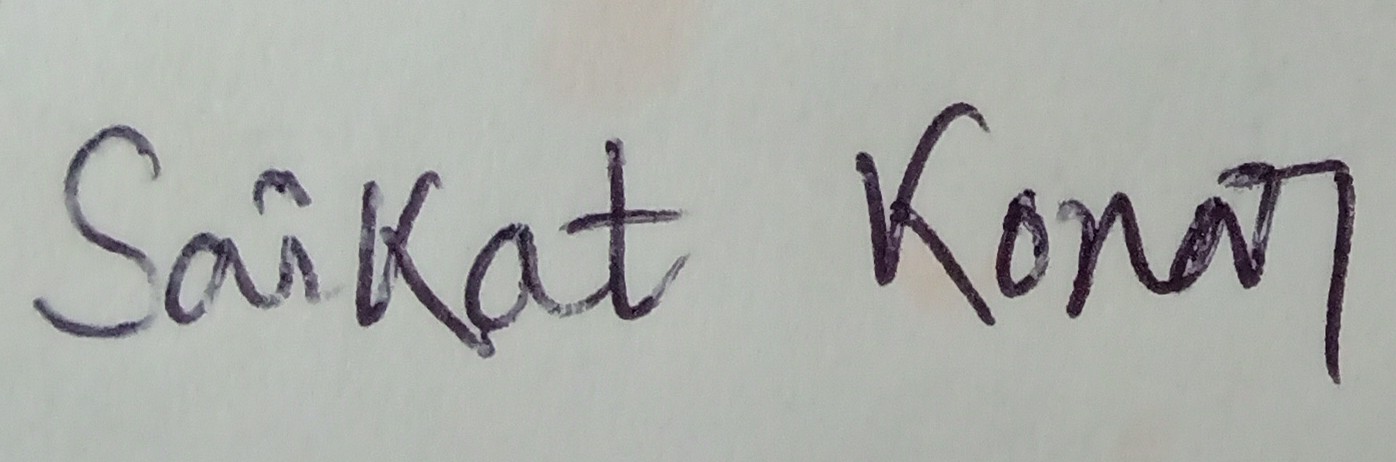 Saikat Konar